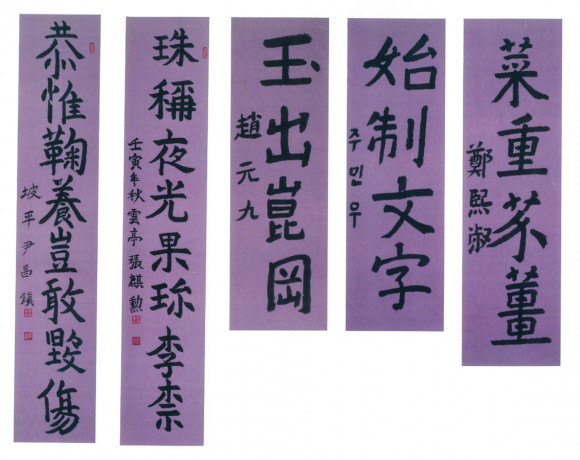 菜重芥薑
鄭熙淑
始制文字
주민우
玉出崑岡
趙元九
珠稱夜光果珎李柰
壬寅年秋雲亭張麒勳
恭惟鞠養豈敢毀傷
坡平尹昌鎭